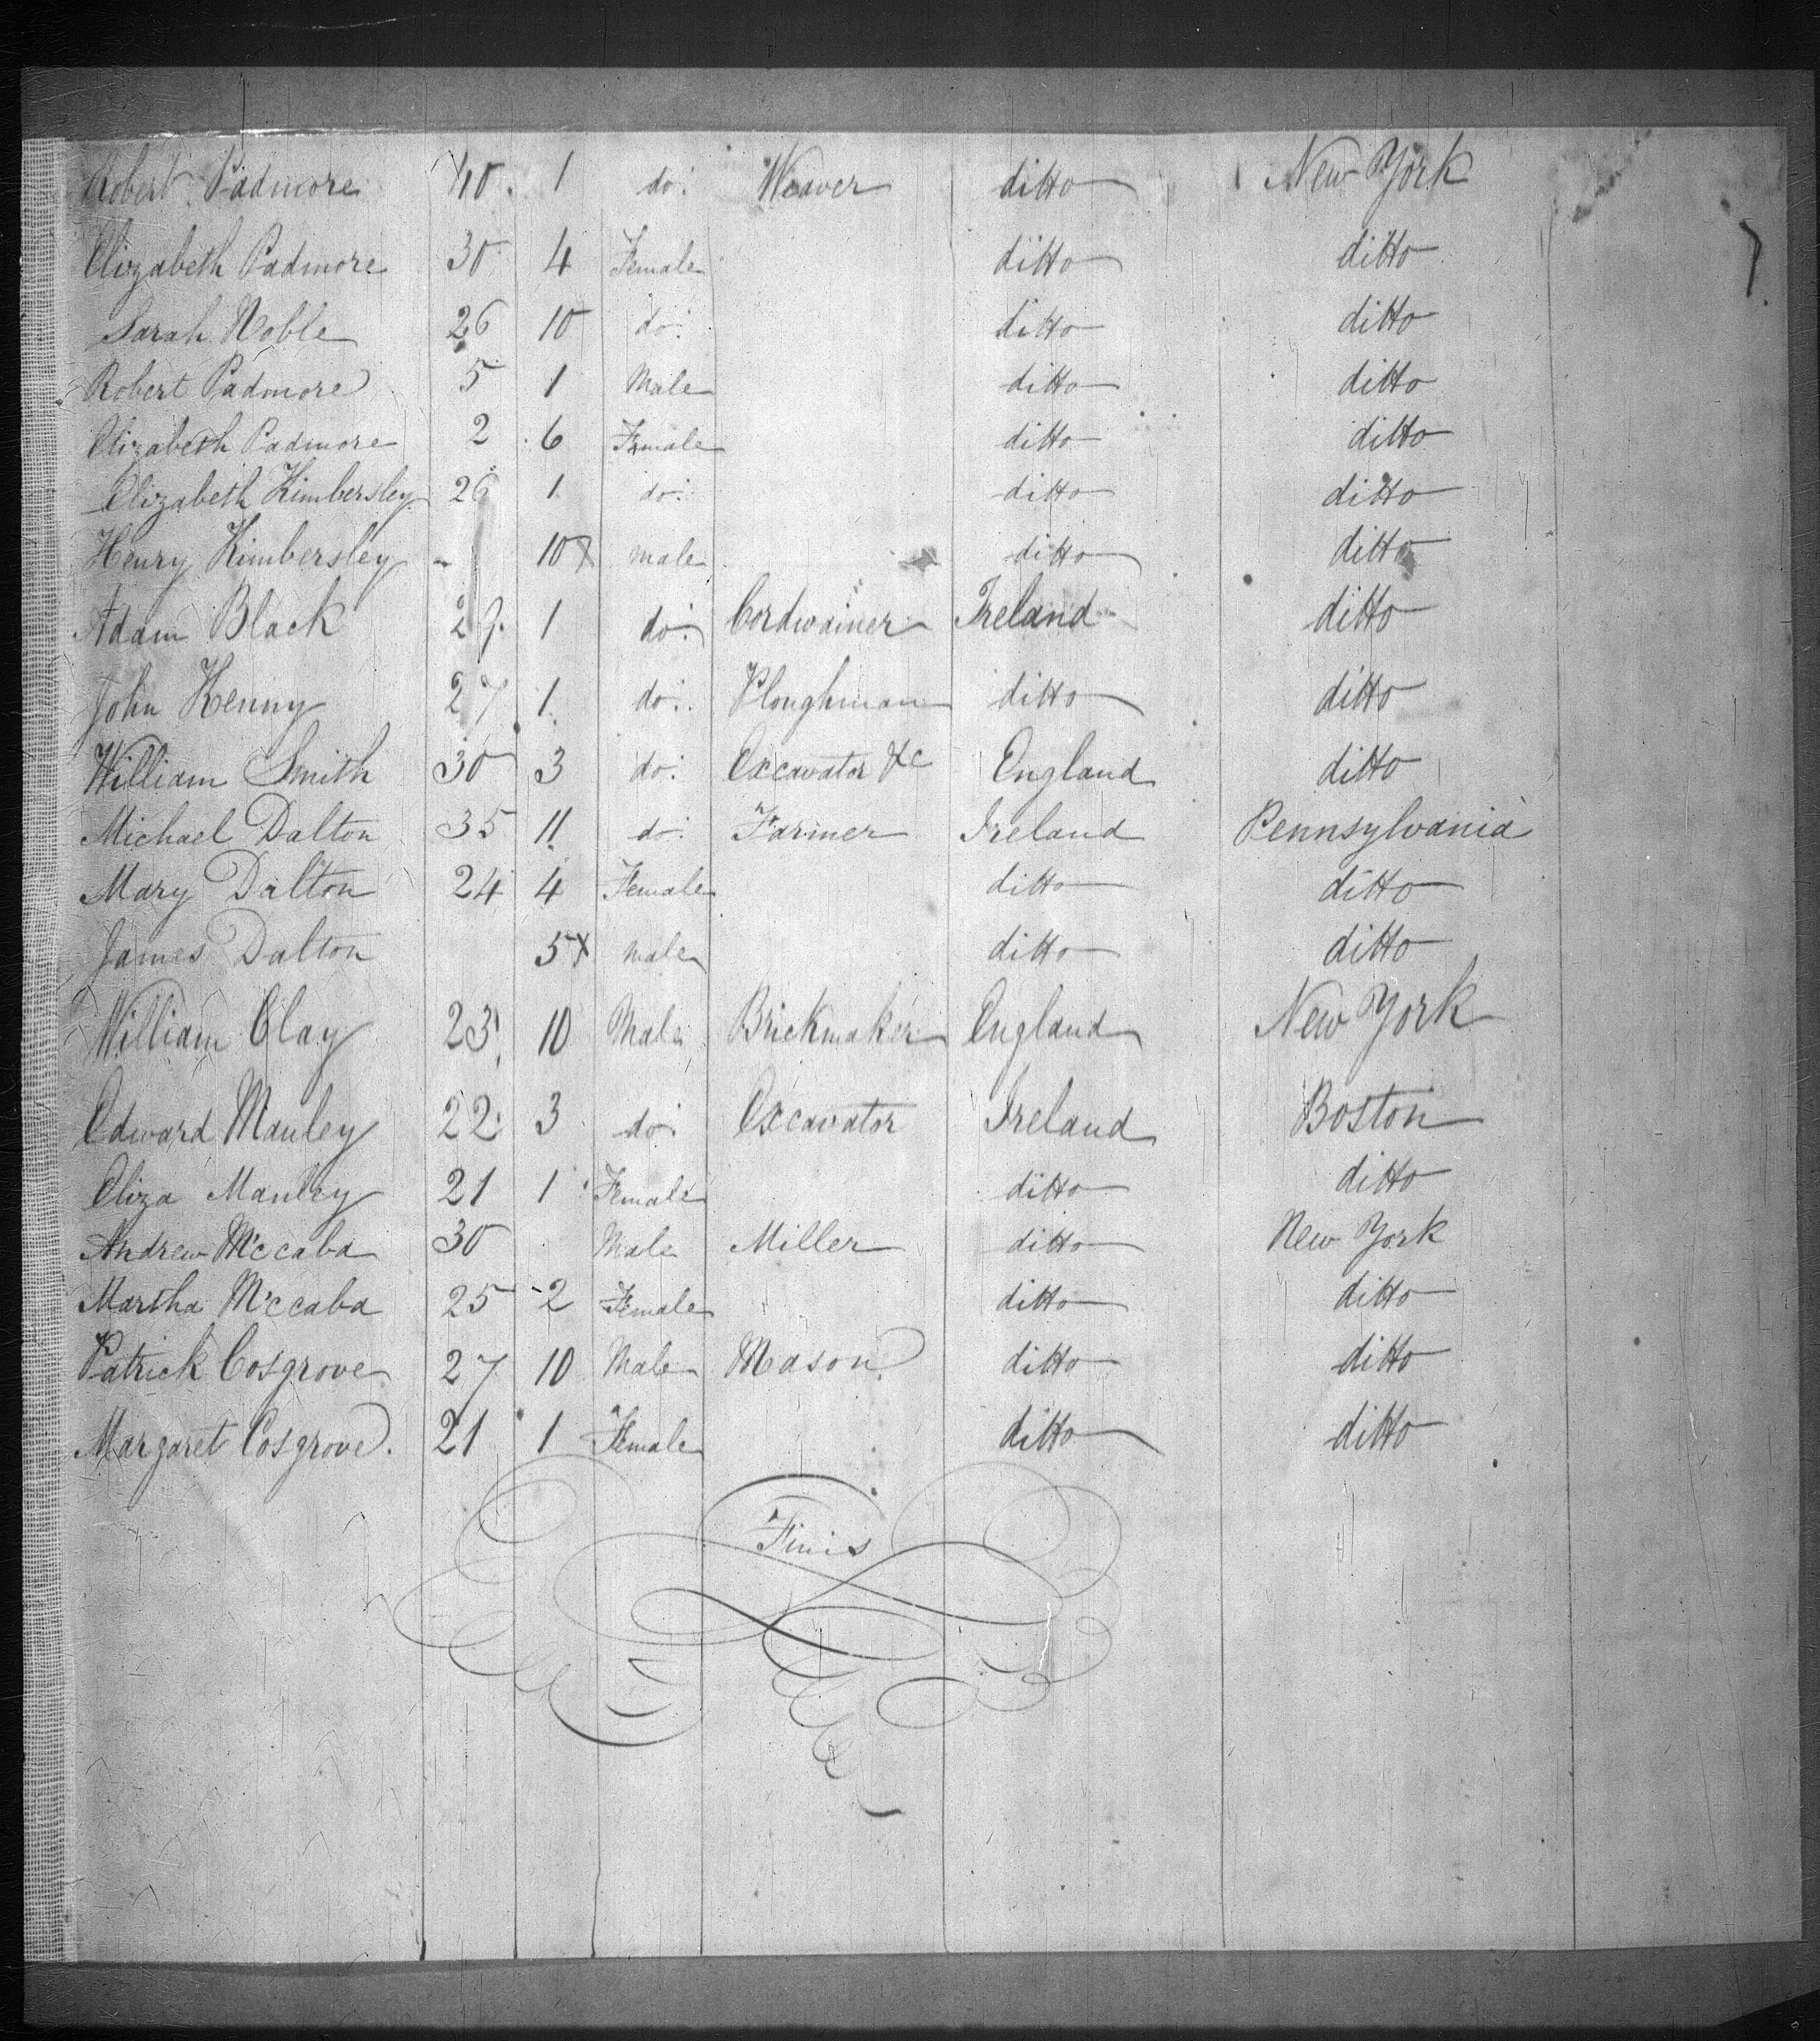 Robert Padmore 40. 1 do: Weaver ditto New York
7.
Elizabeth Padmore 30 4 Female ditto ditto
Sarah Noble 26 10 do: ditto ditto
Robert Padmore 5 1 Male ditto ditto
Elizabeth Padmore 2 6 Female ditto ditto
Elizabeth Kimbersley 26 1 do: ditto ditto
Henry Kimbersley - 10 x male ditto ditto
Adam Black 1 do: Cordwainer Ireland ditto
John Kenny 27 1 do: Ploughman ditto ditto
William Smith 30 3 do: Excavator &c England ditto
Michael Dalton 35 11 do: Farmer Ireland Pennsylvania
Mary Dalton 24 4 Female ditto ditto
James Dalton 5 x male ditto ditto
William Clay 23 10 Male Brickmaker England New York
Edward Manley 22 3 do: Excavator Ireland Boston
Eliza Manley 21 1 Female ditto ditto
Andrew Mccaba 30 Male Miller ditto New York
Martha Mccaba 25 2 Female ditto ditto
Patrick Cosgrove 27 10 Male Mason ditto ditto
Margaret Cosgrove. 21 1 Female ditto ditto
Finis